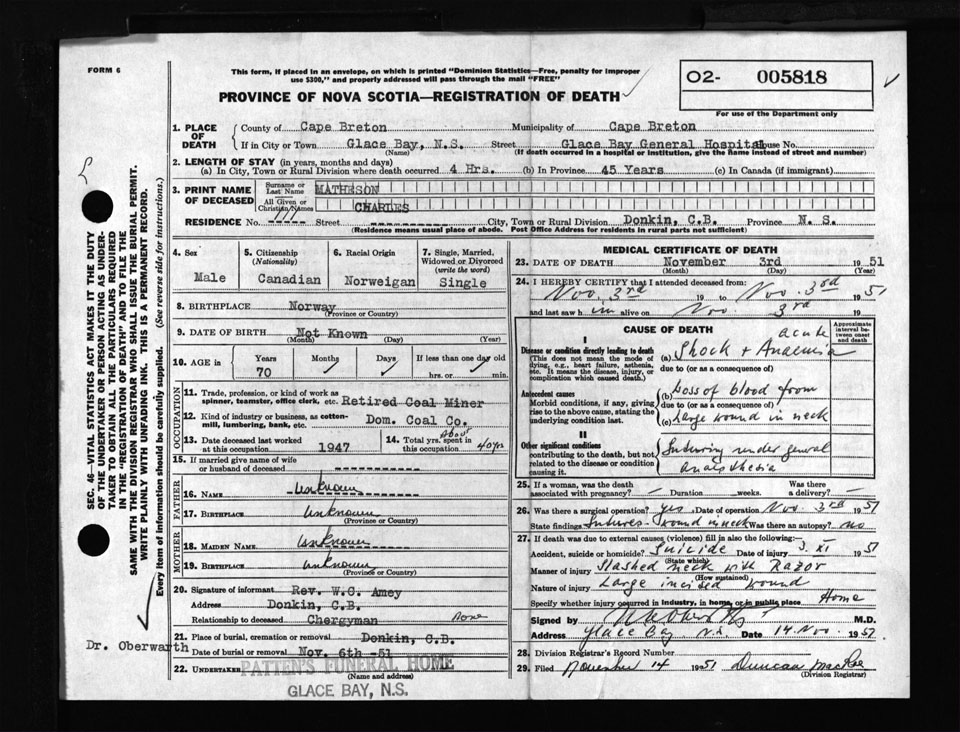 FORM 6
This form, if placed in an envelope, on which is printed "Dominion Statistics—Free, penalty for improper
use $300," and properly addressed will pass through the mail "FREE"
PROVINCE OF NOVA SCOTIA—REGISTRATION OF DEATH
O2- 005818
For use of the Department only
SEC. 46—VITAL STATISTICS ACT MAKES IT THE DUTY
OF THE UNDERTAKER OR PERSON ACTING AS UNDER-
TAKER TO OBTAIN ALL THE PARTICULARS REQUIRED
IN THE "REGISTRATION OF DEATH" AND TO FILE THE
SAME WITH THE DIVISION REGISTRAR WHO SHALL ISSUE THE BURIAL PERMIT.
WRITE PLAINLY WITH UNFADING INK. THIS IS A PERMANENT RECORD.
Every item of information should be carefully supplied. (See reverse side for instructions.)
Dr. Oberwarth
1. PLACE OF DEATH
County of Cape Breton Municipality of Cape Breton
If in City or Town Glace Bay, N.S. Street Glace Bay General Hospital House No.
(Name) (If death occurred in a hospital or institution, give the name instead of street and number)
2. LENGTH OF STAY (in years, months and days)
(a) In City, Town or Rural Division where death occurred 4 Hrs. (b) In Province 45 Years (c) In Canada (if immigrant)
3. PRINT NAME OF DECEASED
Surname or Last Name MATHESON
All Given or Christian Names CHARLES
RESIDENCE No. Street City, Town or Rural Division Donkin, C.B. Province N. S.
(Residence means usual place of abode. Post Office Address for residents in rural parts not sufficient)
4. Sex Male
5. Citizenship (Nationality) Canadian
6. Racial Origin Norweigan
7. Single, Married, Widowed or Divorced (write the word) Single
8. BIRTHPLACE Norway
(Province or Country)
9. DATE OF BIRTH Not Known
(Month) (Day) (Year)
10. AGE in Years 70 Months Days If less than one day old hrs. or min.
OCCUPATION
11. Trade, profession, or kind of work as spinner, teamster, office clerk, etc. Retired Coal Miner
12. Kind of industry or business, as cotton-mill, lumbering, bank, etc. Dom. Coal Co.
13. Date deceased last worked at this occupation 1947
14. Total yrs. spent in this occupation about 40 yrs
15. If married give name of wife or husband of deceased
FATHER
16. NAME Unknown
17. BIRTHPLACE Unknown
(Province or Country)
MOTHER
18. MAIDEN NAME Unknown
19. BIRTHPLACE Unknown
(Province or Country)
20. Signature of informant Rev. W.C. Amey
Address Donkin, C.B.
Relationship to deceased Chergyman None
21. Place of burial, cremation or removal Donkin, C.B.
Date of burial or removal Nov. 6th -51
22. UNDERTAKER PATTEN'S FUNERAL HOME
(Name and address)
GLACE BAY, N.S.
MEDICAL CERTIFICATE OF DEATH
23. DATE OF DEATH November 3rd 1951
(Month) (Day) (Year)
24. I HEREBY CERTIFY that I attended deceased from:
Nov. 3rd 19 to Nov. 3rd 1951
and last saw him alive on Nov. 3rd 19
CAUSE OF DEATH
Approximate interval between onset and death
I
Disease or condition directly leading to death
(This does not mean the mode of dying, e.g., heart failure, asthenia, etc. It means the disease, injury, or complication which caused death.)
(a) acute Shock + Anaemia
due to (or as a consequence of)
Antecedent causes
Morbid conditions, if any, giving rise to the above cause, stating the underlying condition last.
(b) Loss of blood from
due to (or as a consequence of)
(c) Large wound in neck
II
Other significant conditions
contributing to the death, but not related to the disease or condition causing it.
Suturing under general
anaesthesia
25. If a woman, was the death associated with pregnancy? — Duration weeks. Was there a delivery? —
26. Was there a surgical operation? yes Date of operation Nov. 3rd 1951
State findings Sutures - wound in neck Was there an autopsy? no
27. If death was due to external causes (violence) fill in also the following:
Accident, suicide or homicide? Suicide Date of injury 3. XI 1951
(State which)
Manner of injury Slashed neck with Razor
(How sustained)
Nature of injury Large incised wound
Specify whether injury occurred in industry, in home, or in public place Home
Signed by M.D.
Address Glace Bay N.S. Date 14 Nov. 1951
28. Division Registrar's Record Number
29. Filed November 14 1951 Duncan MacRae
(Division Registrar)